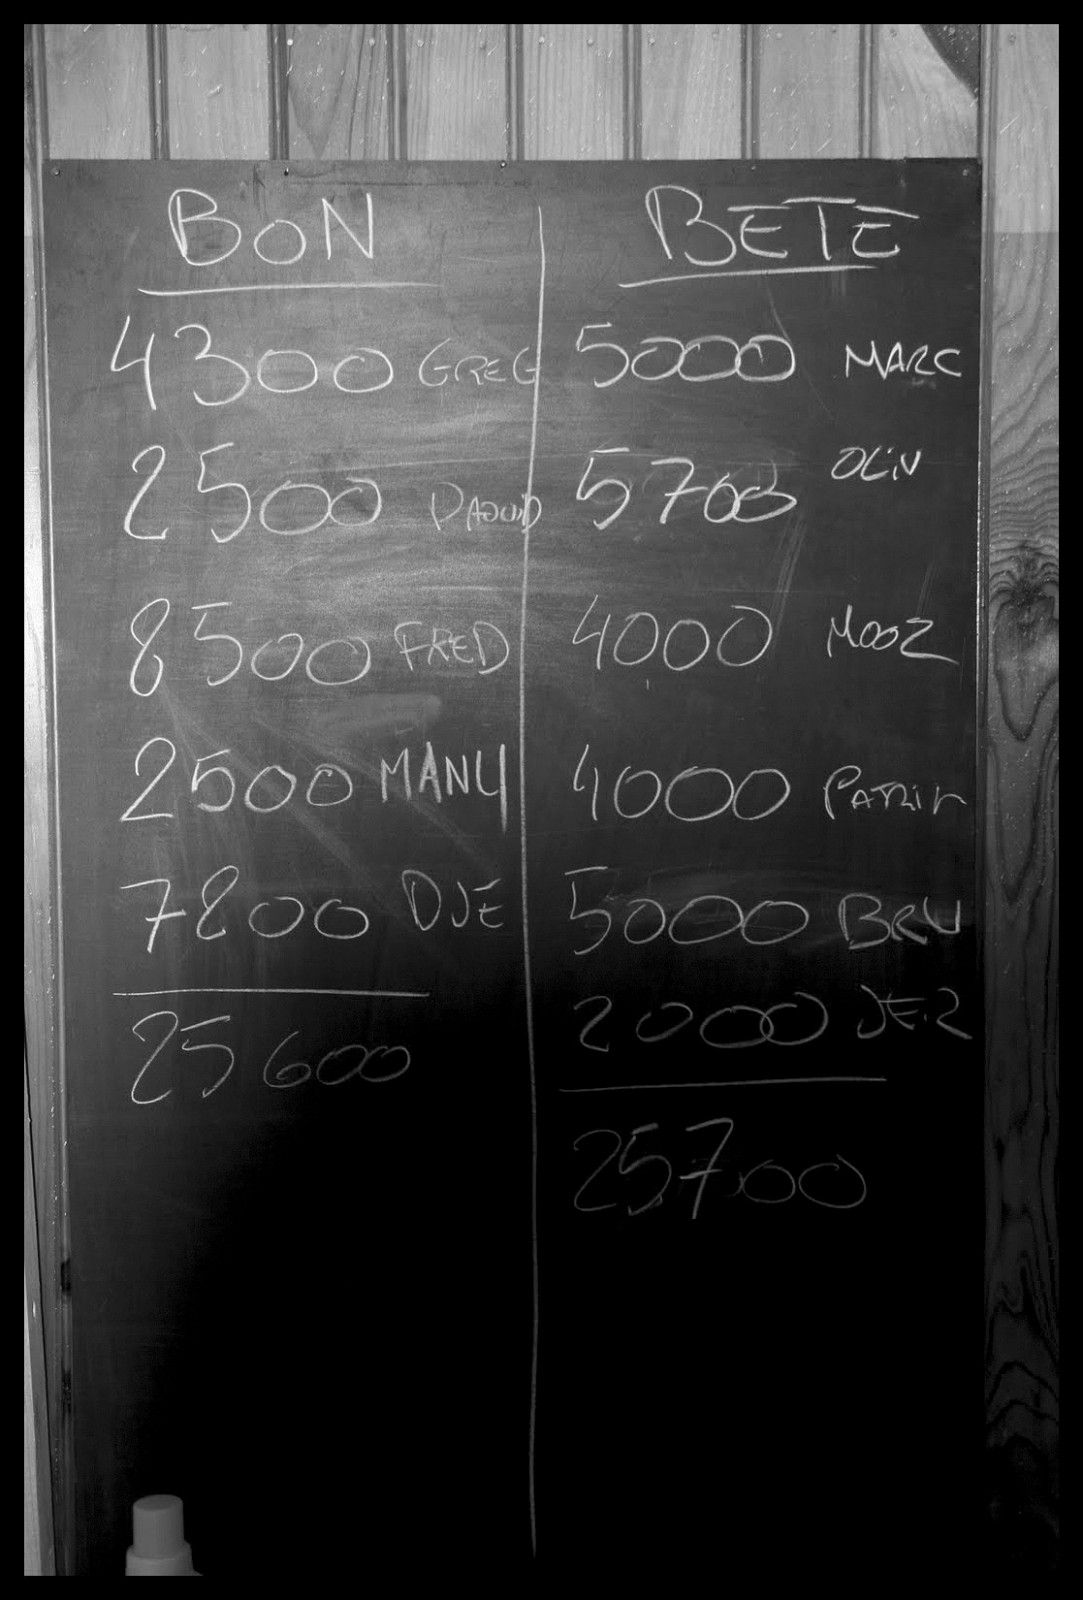 BON
4300 GREG
2500 DAOUID
8500 FRED
2500 MANY
7800 DJE
25600
BETE
5000 MARC
5700 OLIV
4000 MOOZ
4000
5000 BRU
2000 JER
25700